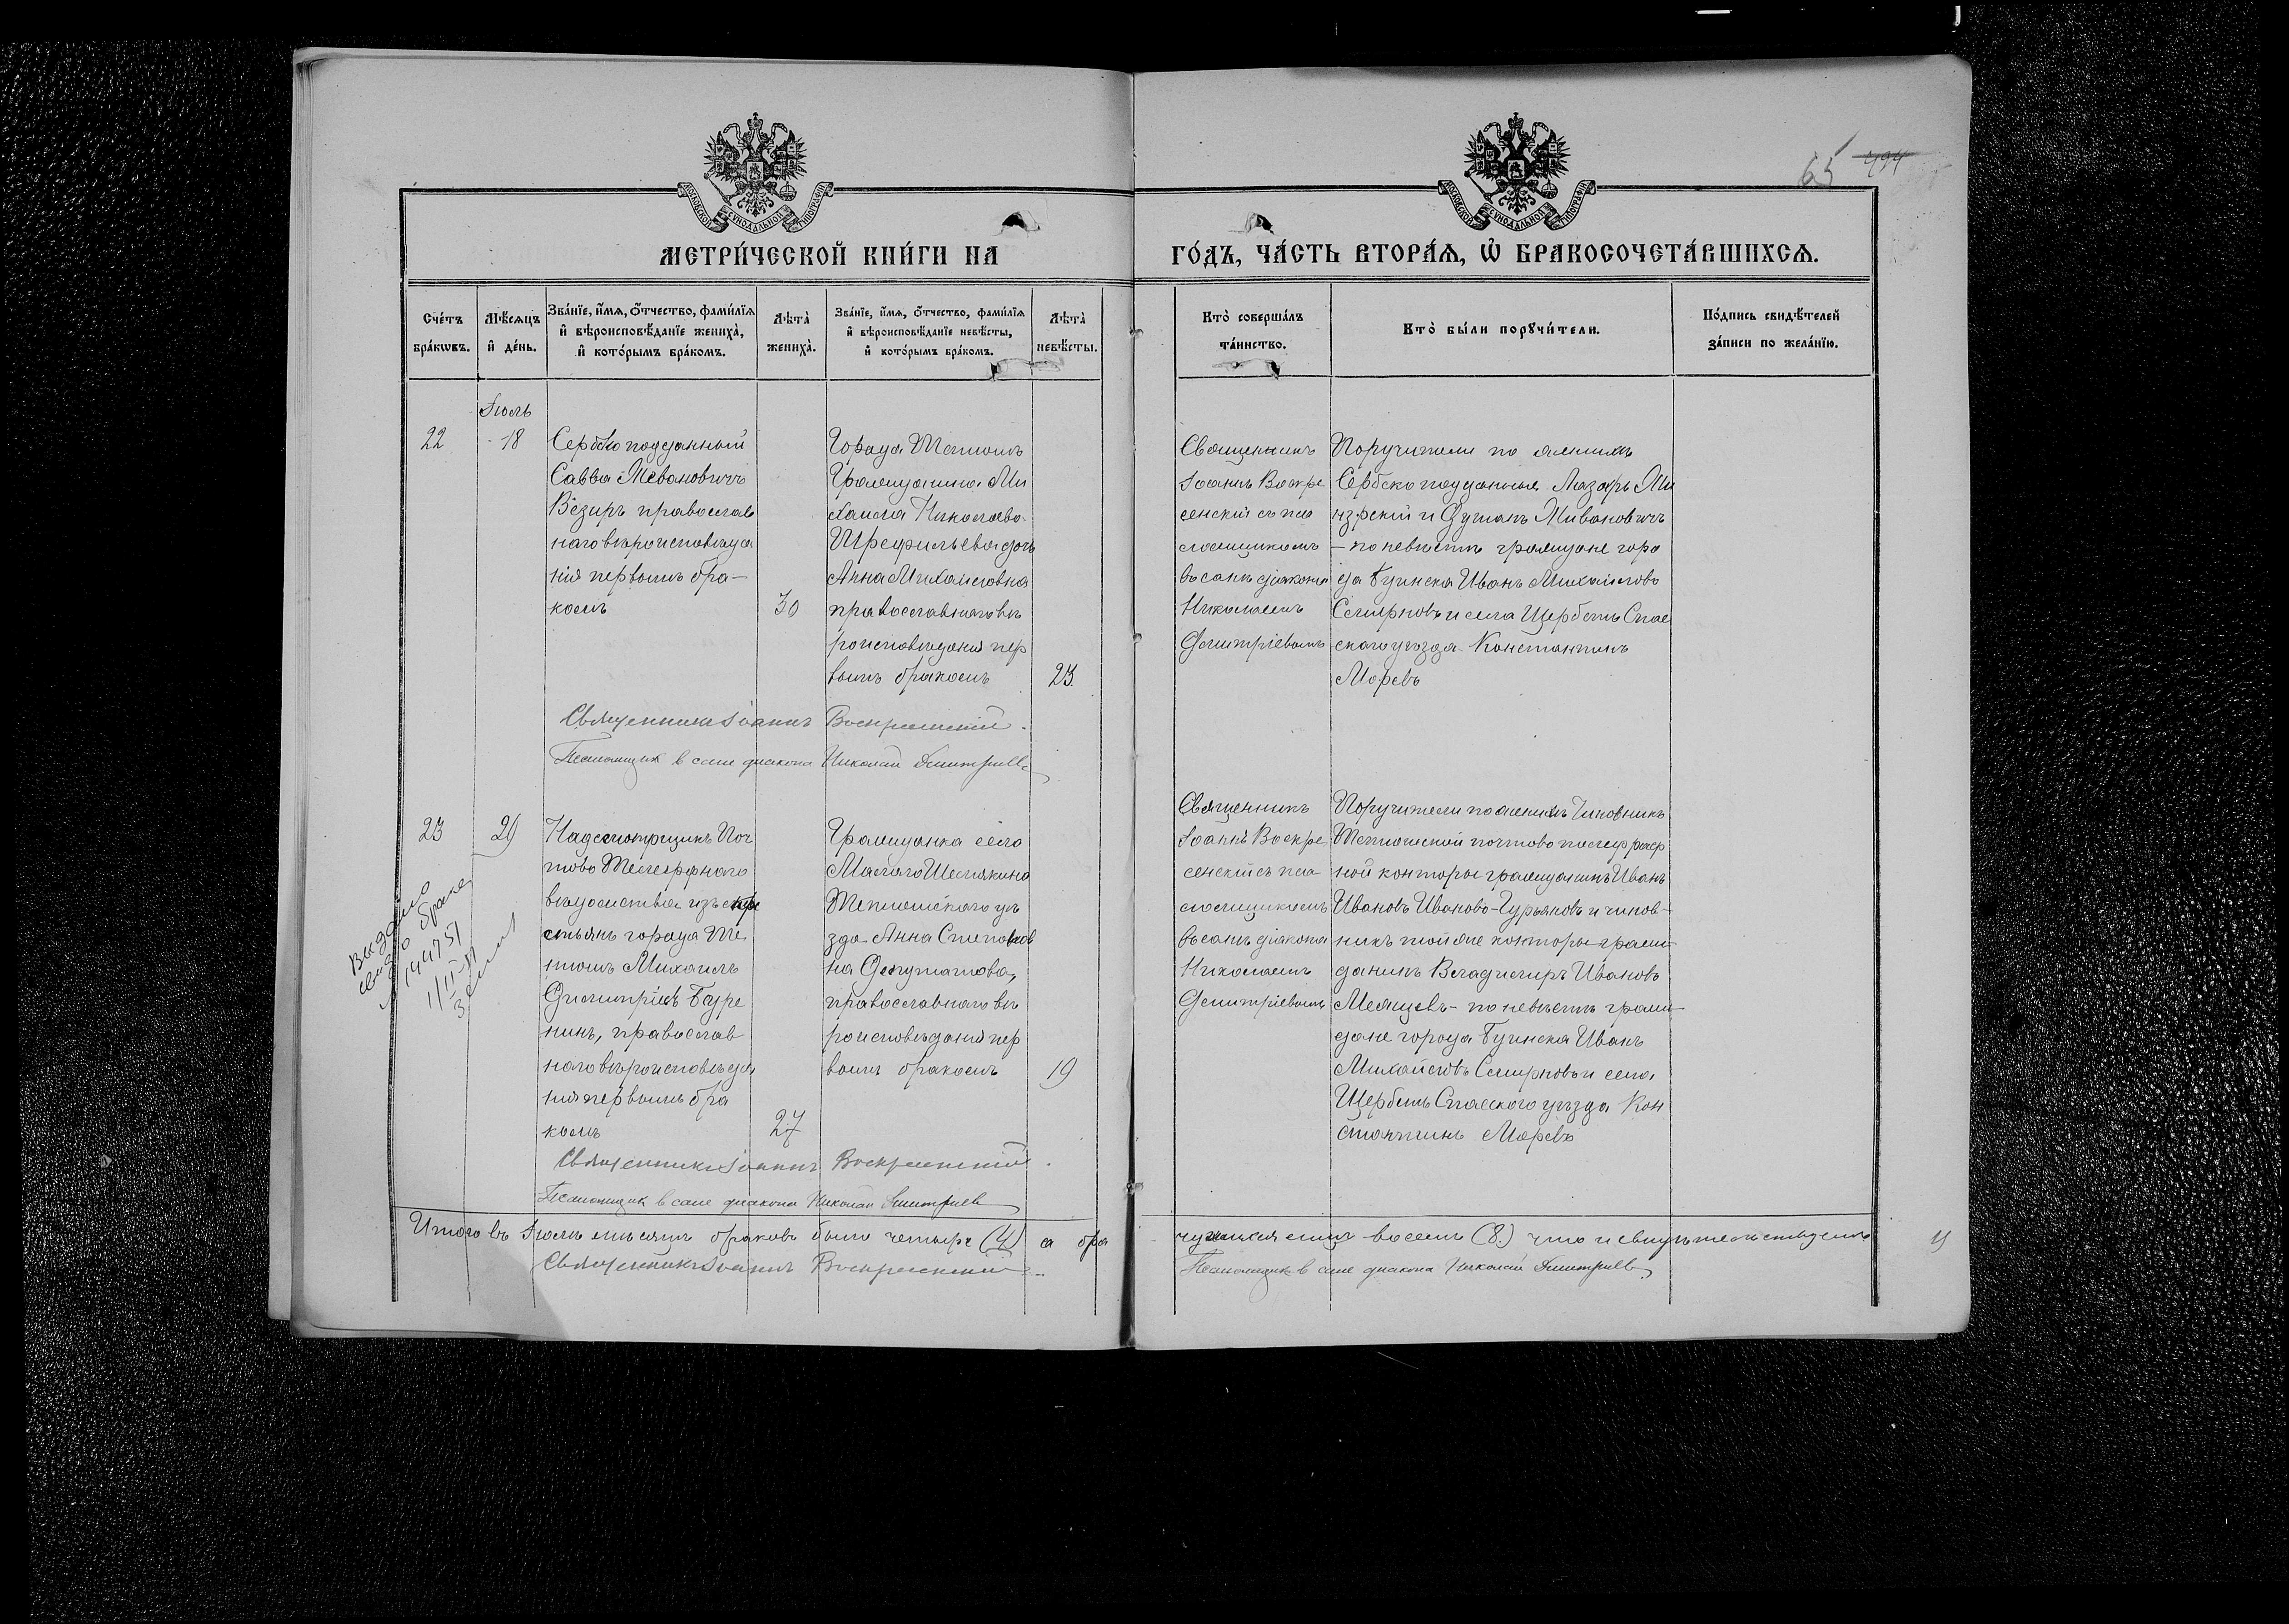 65 494
МОСКОВСКОЙ СѴНОДАЛЬНОЙ ТИПОГРАФІИ
МОСКОВСКОЙ СѴНОДАЛЬНОЙ ТИПОГРАФІИ
МЕТРИ́ЧЕСКОЙ КНИ́ГИ НА
ГО́ДЪ, ЧА́СТЬ ВТОРА́Ѧ, Ѡ҆ БРАКОСОЧЕТА́ВШИХСѦ.
Сче́тъ бра́кѡвъ.
Мѣ́сѧцъ и҆ де́нь.
Зва́нїе, и҆́мѧ, ѻ҆́тчество, фами́лїѧ
и҆ вѣроисповѣ́данїе жениха̀,
и҆ кото́рымъ бра́комъ.
Лѣта̀ жениха̀.
Зва́нїе, и҆́мѧ, ѻ҆́тчество, фами́лїѧ
и҆ вѣроисповѣ́данїе невѣ́сты,
и҆ кото́рымъ бра́комъ.
Лѣта̀ невѣ́сты.
Кто̀ соверша́лъ
та́инство.
Кто̀ бы́ли порꙋчи́тели.
По́дпись свидѣ́телей
за́писи по жела́нїю.
Іюль
22
18
Сербско подданный
Савва Мевановичъ
Везиръ православ
наго вѣроисповѣда
нія первымъ бра-
комъ
30
Города Тетюшъ
Гражданина Ми
хаила Николаева
дочь
Анна Михайловна
православнаго вѣ
роисповѣданія пер
вымъ бракомъ
23
Священникъ
Іоаннъ Воскре
сенскій съ пса
ломщикомъ
въ санѣ діакона
Николаемъ
Димитріевымъ
Поручители по женихѣ
Сербско подданные Лазарь Ми
и Душанъ Мивановичъ
— по невѣстѣ граждане горо
да Буинска Иванъ Михайловъ
Смирновъ и села Щербеть Спас
скаго уѣзда Константинъ
Моревъ
Священникъ Іоаннъ Воскресенскій.
Псаломщик в сане диакона Николай Димитриев
23
29
Надсмотрщикъ Поч
тово Телеграфнаго
вѣдомства изъ кре
стьянъ города Те
тюшъ Михаилъ
Димитріевъ Буре
нинъ, православ
наго вѣроисповѣда
нія первымъ бра
комъ
27
Гражданка села
Малого Шемякина
Тетюшскаго уѣ
зда Анна Степанов
на Депутатова,
православнаго вѣ
роисповѣданія пер
вымъ бракомъ
19
Священникъ
Іоаннъ Воскре
сенскій съ пса
ломщикомъ
въ санѣ діакона
Николаемъ
Димитріевымъ
Поручители по женихѣ Чиновникъ
Тетюшской почтово телеграф
ной конторы гражданинъ Иванъ
Ивановъ Иваново-Гурьяновъ и чинов-
никъ той же конторы граж-
данинъ Владимиръ Ивановъ
— по невѣстѣ граж-
дане города Буинска Иванъ
Михайловъ Смирновъ и села
Щербеть Спасскаго уѣзда Кон
стантинъ Моревъ
Выдано
свид. о браке
144751
1/II-51
Священникъ Іоаннъ Воскресенскій.
Псаломщик в сане диакона Николай Димитриев
Итого въ Іюлѣ мѣсяцѣ браковъ было четыре (4) а бра
чущихся лицъ восемь (8.) что и свидѣтельствуемъ
Священникъ Іоаннъ Воскресенскій.
Псаломщик в сане диакона Николай Димитриев